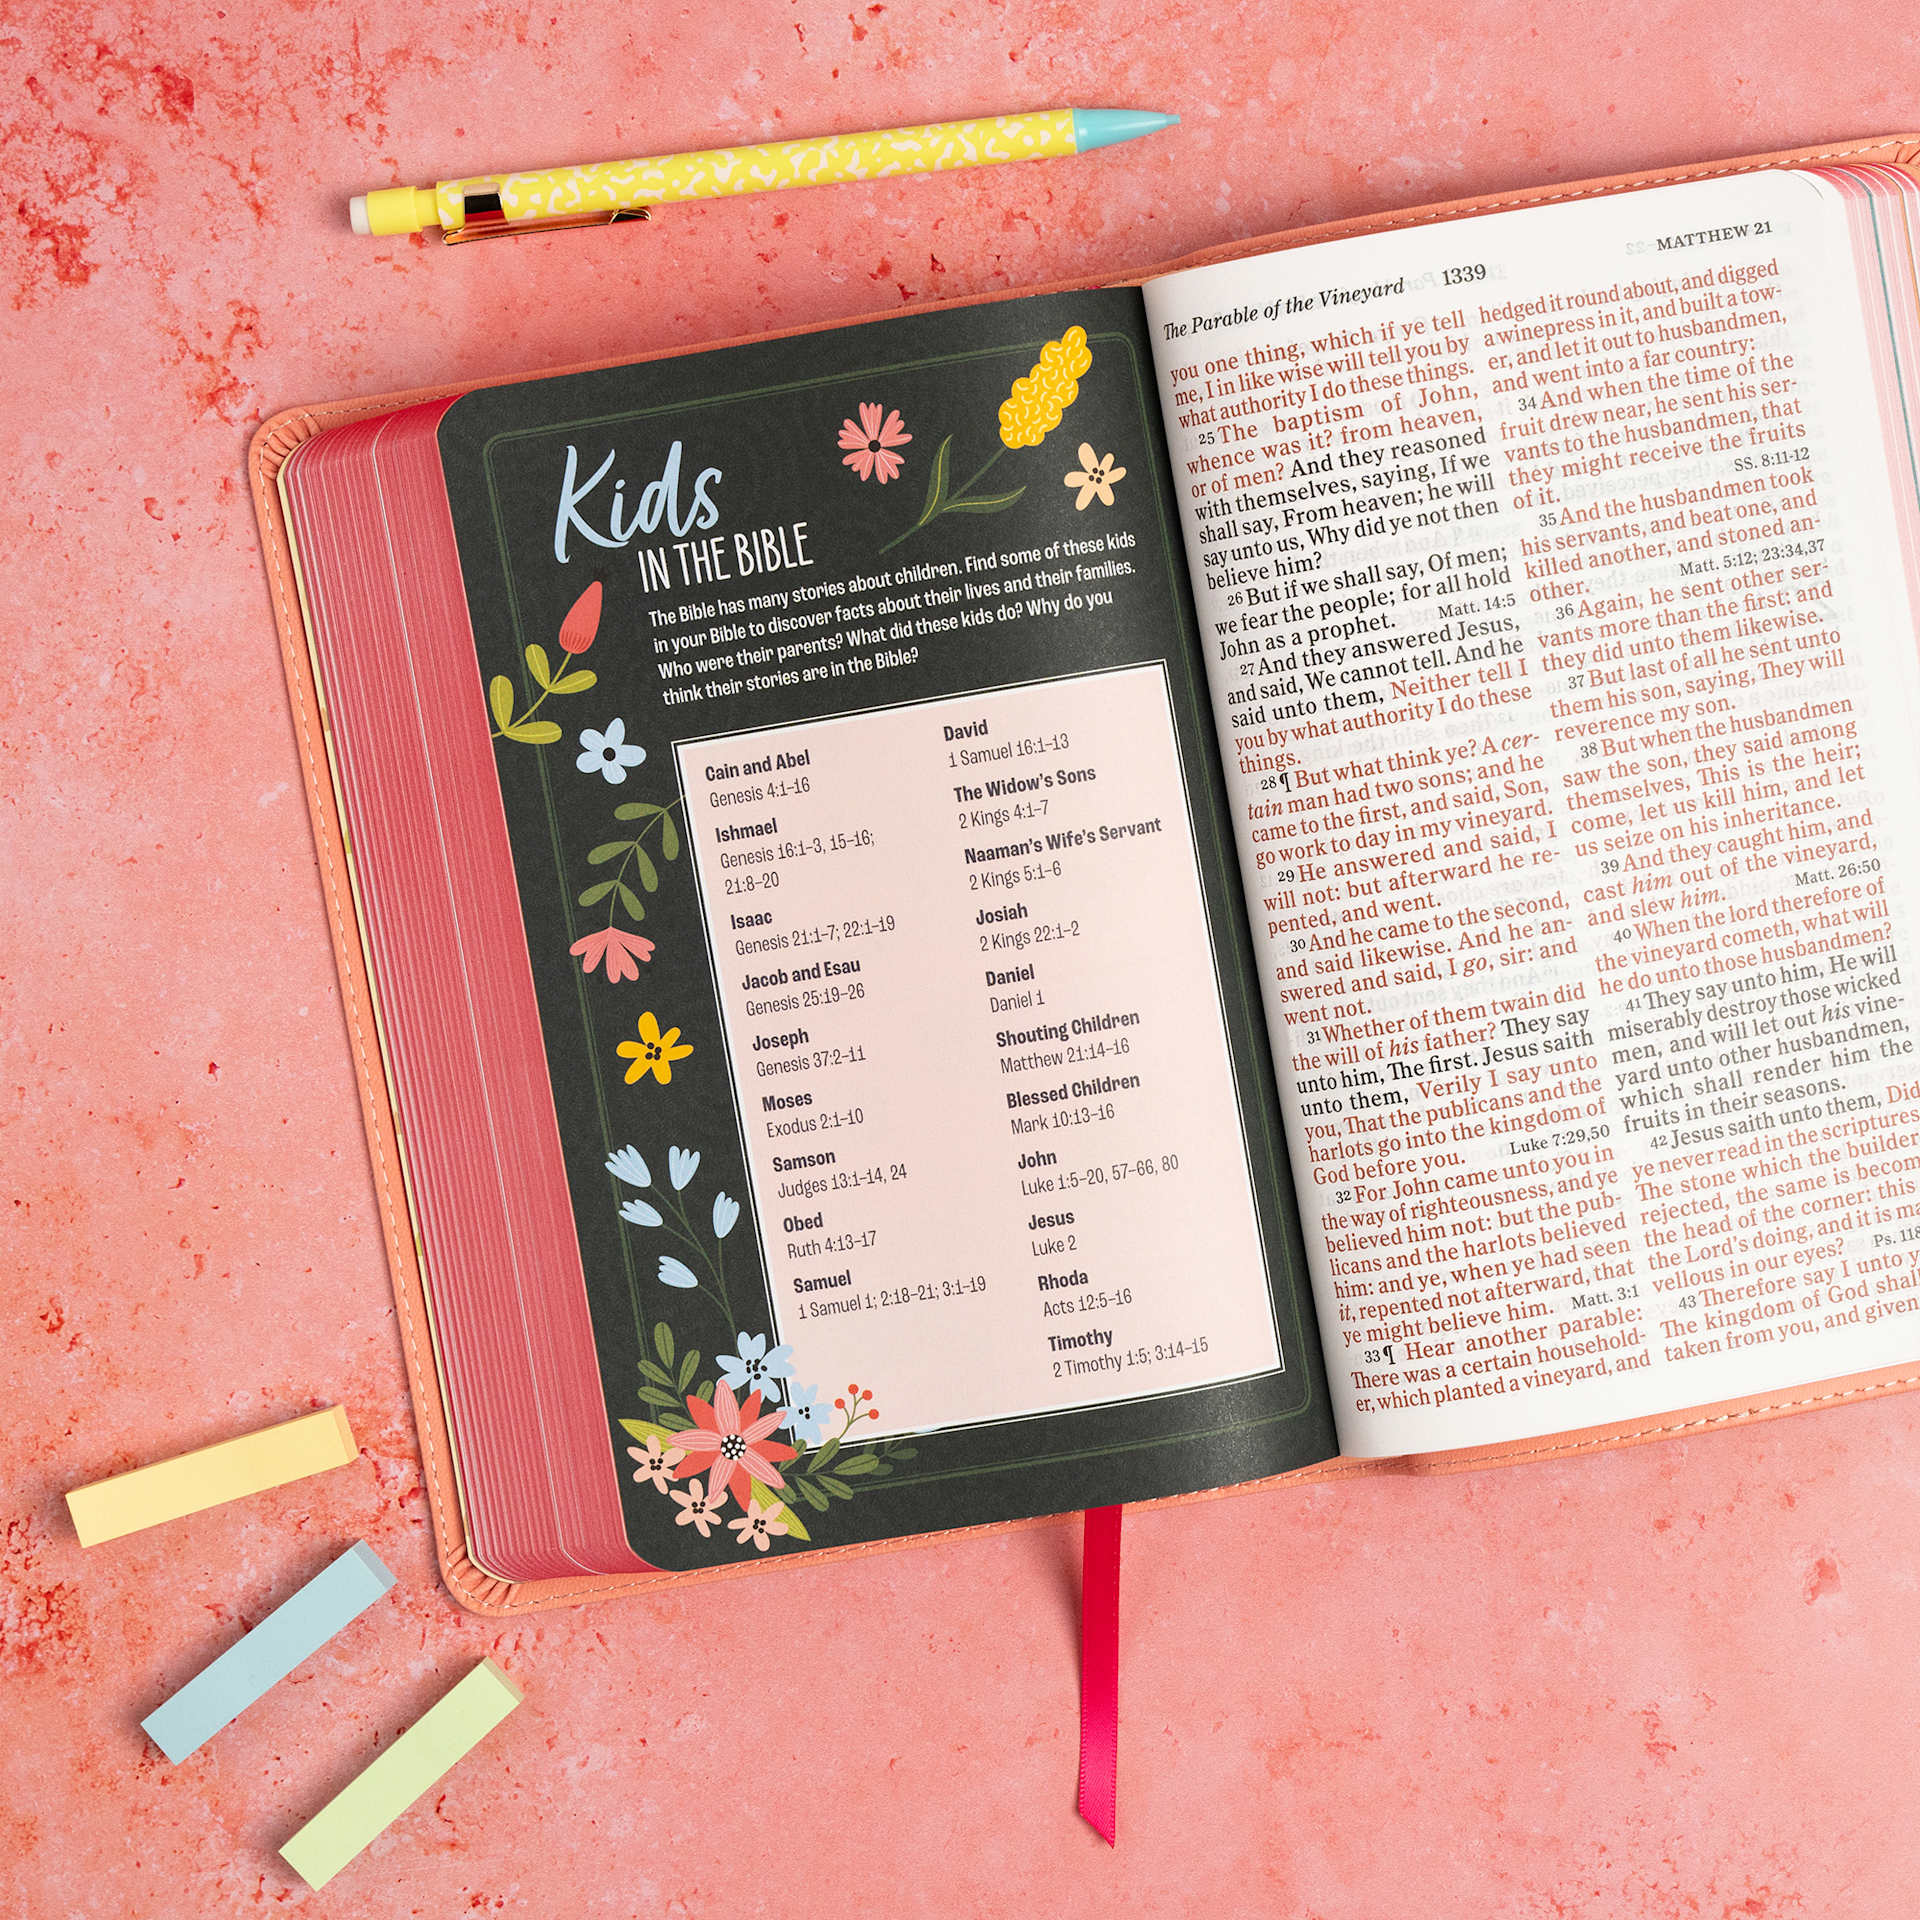 Kids
IN THE BIBLE
The Bible has many stories about children. Find some of these kids
in your Bible to discover facts about their lives and their families.
Who were their parents? What did these kids do? Why do you
think their stories are in the Bible?
Cain and Abel
Genesis 4:1–16
Ishmael
Genesis 16:1–3, 15–16;
21:8–20
Isaac
Genesis 21:1–7; 22:1–19
Jacob and Esau
Genesis 25:19–26
Joseph
Genesis 37:2–11
Moses
Exodus 2:1–10
Samson
Judges 13:1–14, 24
Obed
Ruth 4:13–17
Samuel
1 Samuel 1; 2:18–21; 3:1–19
David
1 Samuel 16:1–13
The Widow's Sons
2 Kings 4:1–7
Naaman's Wife's Servant
2 Kings 5:1–6
Josiah
2 Kings 22:1–2
Daniel
Daniel 1
Shouting Children
Matthew 21:14–16
Blessed Children
Mark 10:13–16
John
Luke 1:5–20, 57–66, 80
Jesus
Luke 2
Rhoda
Acts 12:5–16
Timothy
2 Timothy 1:5; 3:14–15
The Parable of the Vineyard 1339
MATTHEW 21
you one thing, which if ye tell
me, I in like wise will tell you by
what authority I do these things.
25 The baptism of John,
whence was it? from heaven,
or of men? And they reasoned
with themselves, saying, If we
shall say, From heaven; he will
say unto us, Why did ye not then
believe him?
26 But if we shall say, Of men;
we fear the people; for all hold
John as a prophet. Matt. 14:5
27 And they answered Jesus,
and said, We cannot tell. And he
said unto them, Neither tell I
you by what authority I do these
things.
28 ¶ But what think ye? A cer-
tain man had two sons; and he
came to the first, and said, Son,
go work to day in my vineyard.
29 He answered and said, I
will not: but afterward he re-
pented, and went.
30 And he came to the second,
and said likewise. And he an-
swered and said, I go, sir: and
went not.
31 Whether of them twain did
the will of his father? They say
unto him, The first. Jesus saith
unto them, Verily I say unto
you, That the publicans and the
harlots go into the kingdom of
God before you. Luke 7:29,50
32 For John came unto you in
the way of righteousness, and ye
believed him not: but the pub-
licans and the harlots believed
him: and ye, when ye had seen
it, repented not afterward, that
ye might believe him. Matt. 3:1
33 ¶ Hear another parable:
There was a certain household-
er, which planted a vineyard, and
hedged it round about, and digged
a winepress in it, and built a tow-
er, and let it out to husbandmen,
and went into a far country:
34 And when the time of the
fruit drew near, he sent his ser-
vants to the husbandmen, that
they might receive the fruits
of it. SS. 8:11-12
35 And the husbandmen took
his servants, and beat one, and
killed another, and stoned an-
other. Matt. 5:12; 23:34,37
36 Again, he sent other ser-
vants more than the first: and
they did unto them likewise.
37 But last of all he sent unto
them his son, saying, They will
reverence my son.
38 But when the husbandmen
saw the son, they said among
themselves, This is the heir;
come, let us kill him, and let
us seize on his inheritance.
39 And they caught him, and
cast him out of the vineyard,
and slew him. Matt. 26:50
40 When the lord therefore of
the vineyard cometh, what will
he do unto those husbandmen?
41 They say unto him, He will
miserably destroy those wicked
men, and will let out his vine-
yard unto other husbandmen,
which shall render him the
fruits in their seasons.
42 Jesus saith unto them, Did
ye never read in the scriptures
The stone which the builder
rejected, the same is becom
the head of the corner: this
the Lord's doing, and it is ma
vellous in our eyes? Ps. 118
43 Therefore say I unto y
The kingdom of God shal
taken from you, and given